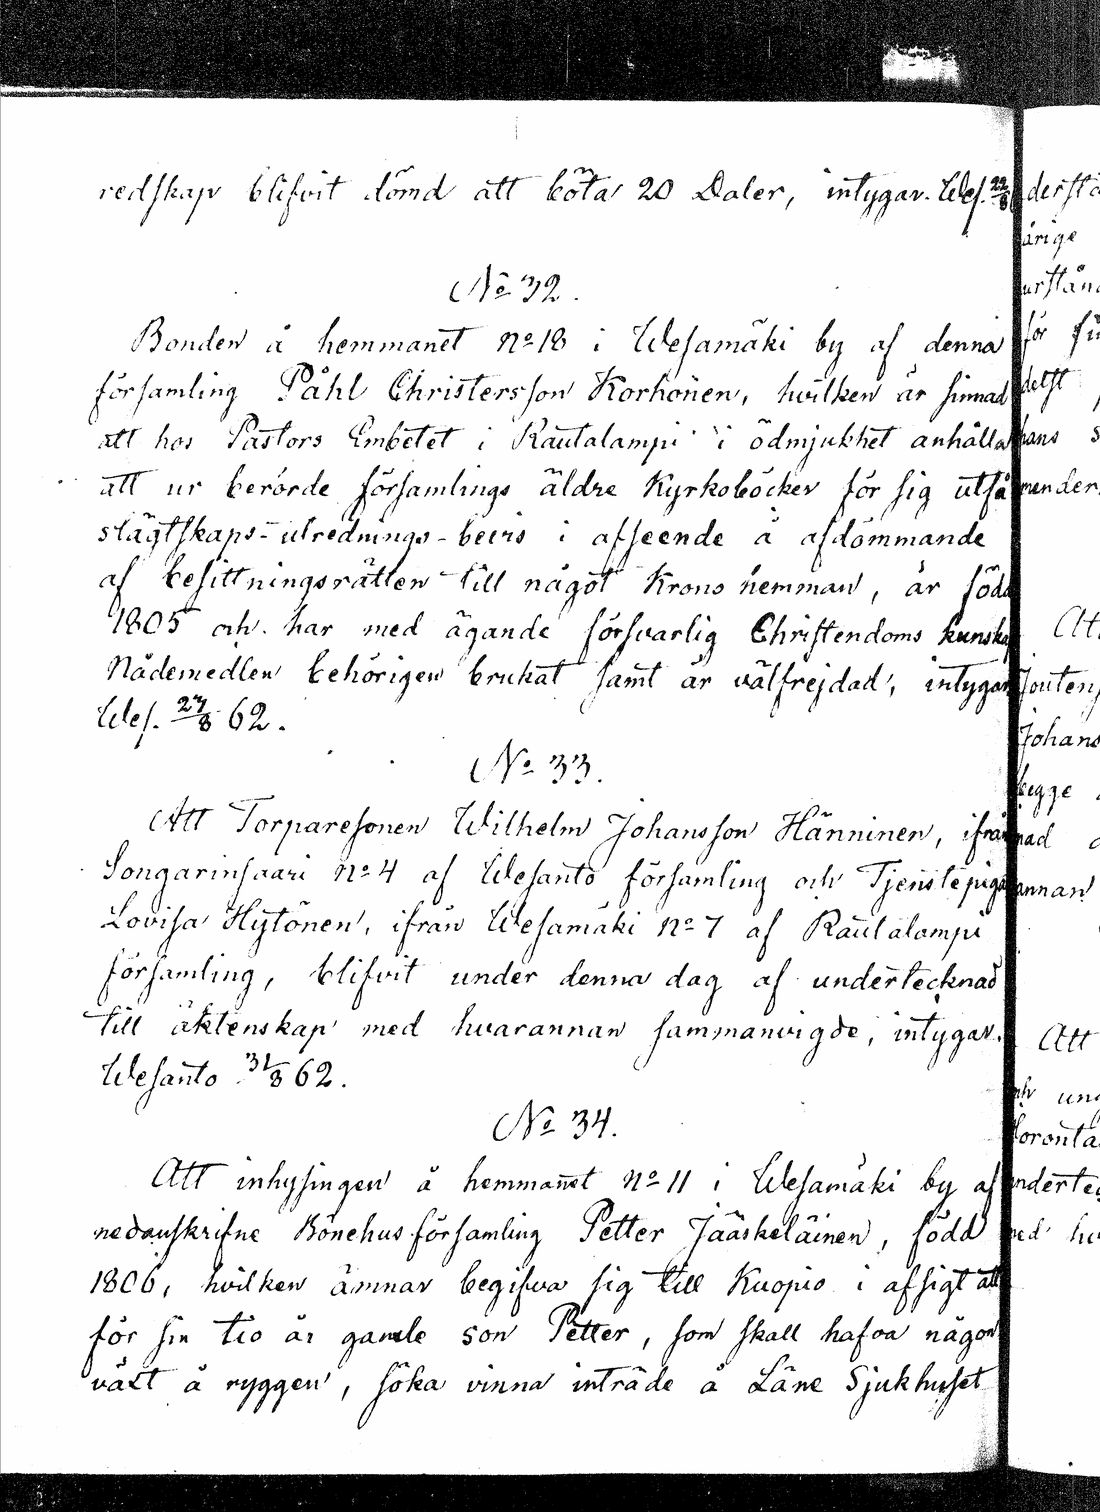 redskap blifvit dömd att böta 20 Daler, intygar. Wes. 22/8
No 32.
Bonden å hemmanet No 18 i Wesamäki by af denna
församling Påhl Christersson Korhonen, hvilken är sinnad
att hos Pastors Embetet i Rautalampi i ödmjukhet anhålla
att ur berörde församlings äldre Kyrkoböcker för sig utfå
slägtskaps-utrednings-bevis i afseende å afdömmande
af besittningsrätten till något Krono hemman, är född
1805 och har med ägande försvarlig Christendoms kunskap
Nådemedlen behörigen brukat samt är välfrejdad, intygar
Wes. 27/8 62.
No 33.
Att Torparesonen Wilhelm Johansson Hänninen, ifrån
Songarinsaari No 4 af Wesanto församling och Tjenstepiga
Lovisa Hytönen, ifrån Wesamäki No 7 af Rautalampi
församling, blifvit under denna dag af undertecknad
till äktenskap med hvarannan sammanvigde, intygar.
Wesanto 31/8 62.
No 34.
Att inhysingen å hemmanet No 11 i Wesamäki by af
nedanskrifne Bönehus församling Petter Jääskeläinen, född
1806, hvilken ämnar begifva sig till Kuopio i afsigt att
för sin tio år gamle son Petter, som skall hafva någon
växt å ryggen, söka vinna inträde å Läne Sjukhuset